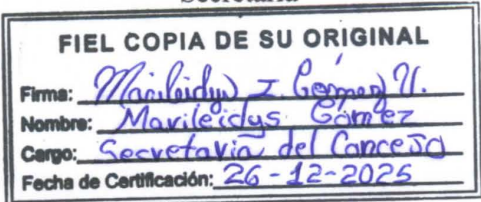 FIEL COPIA DE SU ORIGINAL
Firma: Marileidys I. Gómez U.
Nombre: Marileidys Gómez
Cargo: Secretaria del Concejo
Fecha de Certificación: 26-12-2025